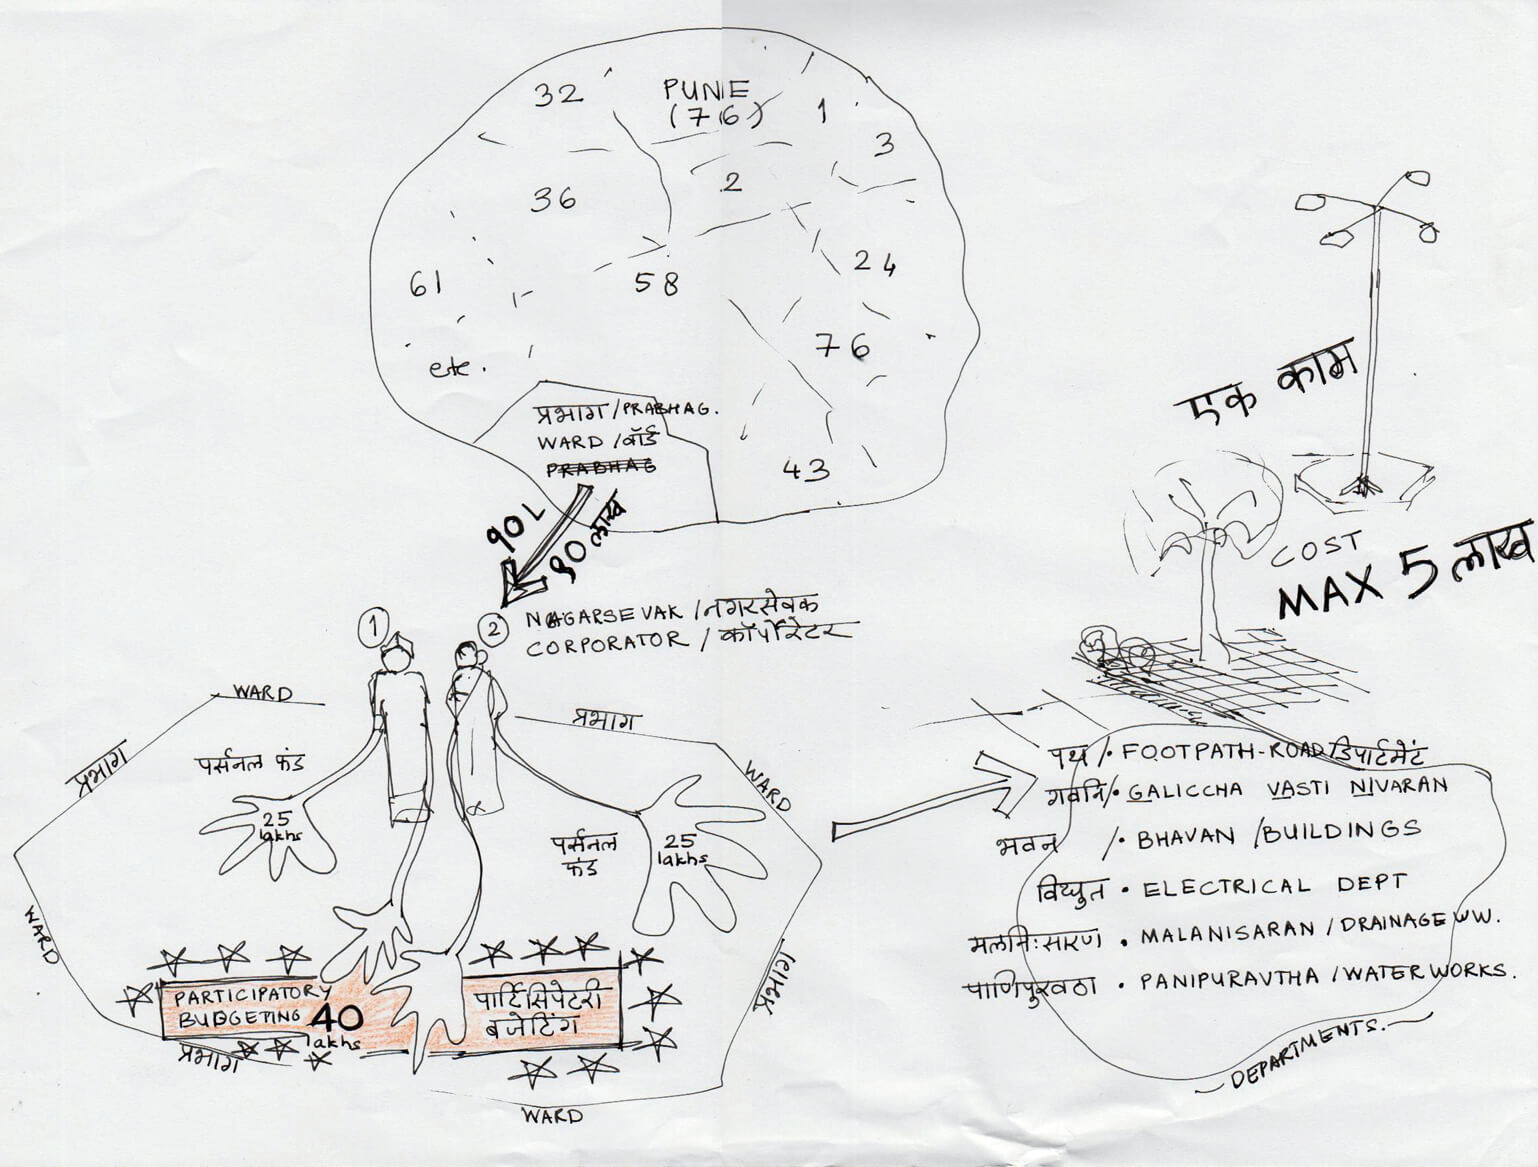 32
PUNE
(76)
1
3
36
2
61
58
24
76
etc.
43
प्रभाग/PRABHAG.
WARD/वॉर्ड
PRABHAG
90 L
90 लाख
1
2
NAGARSEVAK/नगरसेवक
CORPORATOR/कॉर्पोरेटर
एक काम
COST
MAX 5 लाख
WARD
प्रभाग
प्रभाग
WARD
पर्सनल फंड
25
lakhs
पर्सनल
फंड
25
lakhs
WARD
PARTICIPATORY
BUDGETING 40
lakhs
पार्टिसिपेटरी
बजेटिंग
प्रभाग
WARD
पथ/• FOOTPATH-ROAD/डिपार्टमेंट
गवनि/• GALICCHA VASTI NIVARAN
भवन /• BHAVAN /BUILDINGS
विद्युत • ELECTRICAL DEPT
मलनि:सारण • MALANISARAN/DRAINAGE WW.
पाणिपुरवठा • PANIPURAVTHA/WATERWORKS.
— DEPARTMENTS.—